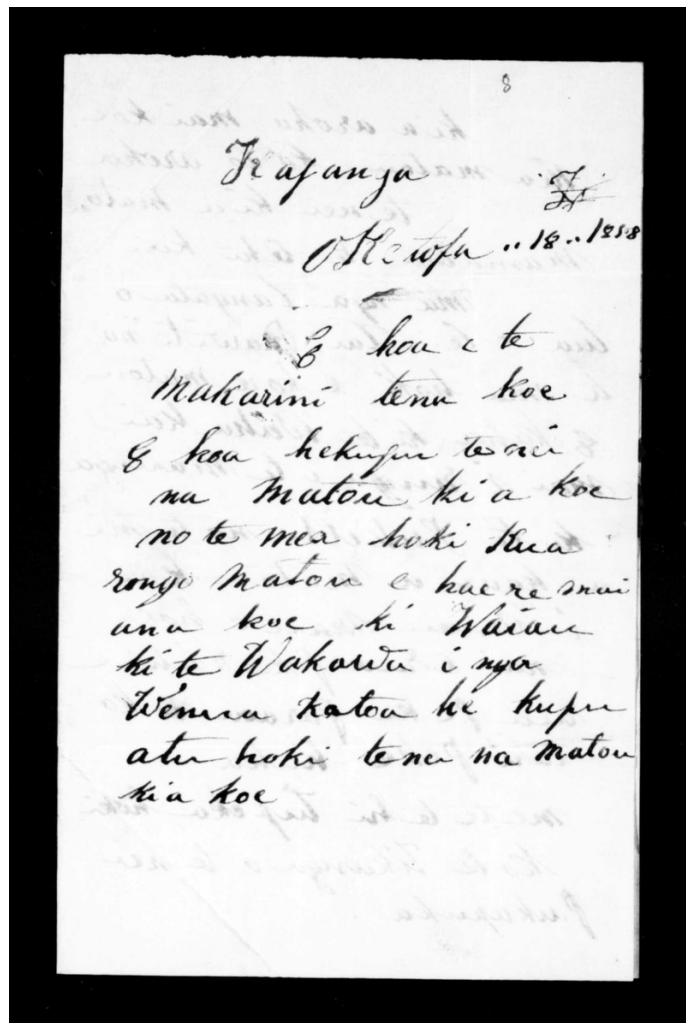 8
Kaganga
Oketopa " 18 " 1858
E hoa e te
Makarini tena koe
E hoa hekupu tenei
na Matou ki a koe
no te mea hoki Kua
rongo Matou e hae re mai
ana koe ki Waiau
ki te Wakawa i nga
Wenua Katoa he kupu
atu hoki tenei na Matou
ki a koe